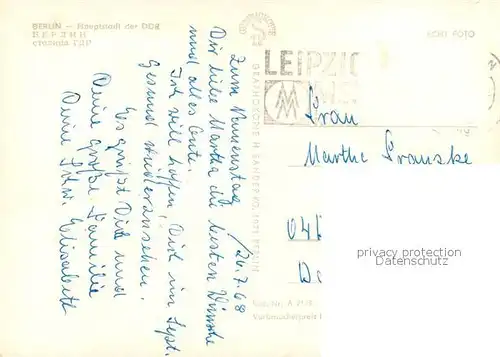 BERLIN — Hauptstadt der DDR
БЕРЛИН
столица ГДР
ECHT FOTO
LEIPZIG
MM
Zum Namenstag 26.7.68
Dir liebe Martha die besten Wünsche
und alles Gute.
Ich will hoffen, Dich im Sept.
Gesund wiederzusehen.
Es grüßt Dich und
Deine große Familie
Deine Elisabeth
GRAPHOKOPIE H. SANDER KG, 1071 BERLIN
Frau
Martha Franske
privacy protection
Verbraucherpreis